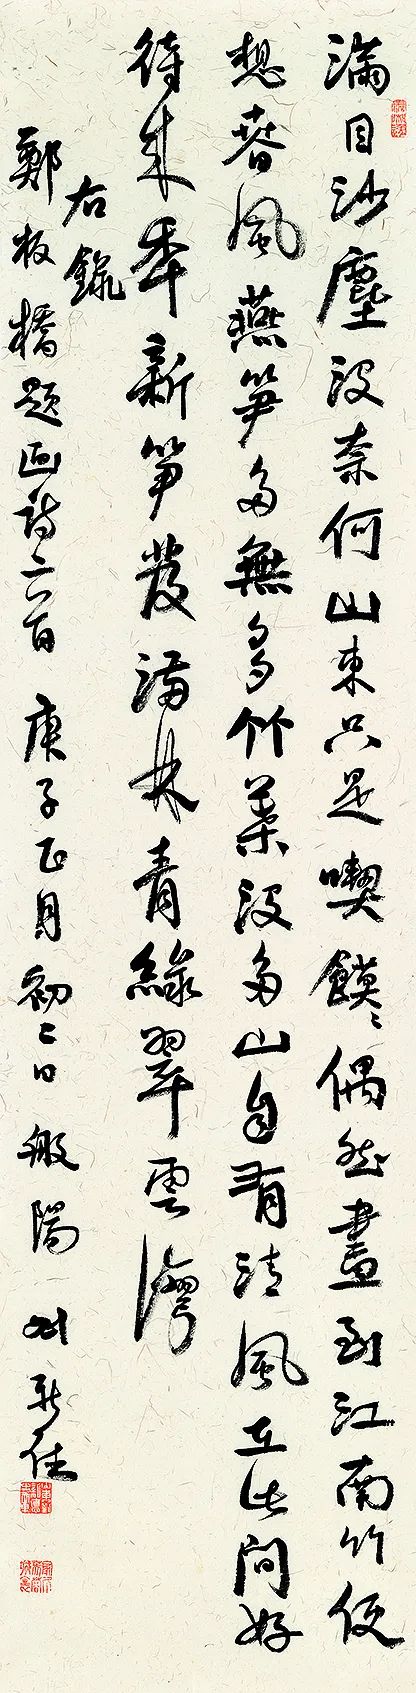 滿目沙塵沒奈何山東只是喫饃〻偶然畫到江南竹便
想春風燕笋多無多竹葉沒多山自有清風在此間好
待來年新笋發滿林青綠翠雲灣
右錄
鄭板橋題画詩二首 庚子正月初二日 般陽